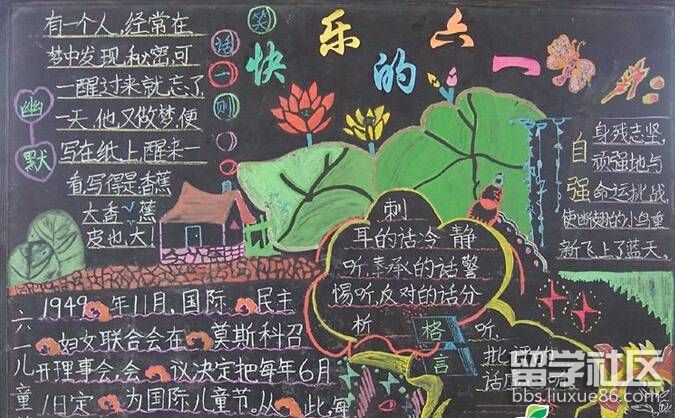 快乐的六一
笑话一则
幽默
有一个人,经常在
梦中发现秘密,可
一醒过来就忘了
一天,他又做梦,便
写在纸上,醒来一
看写得是香蕉
大香蕉
皮也大!
自强
身残志坚,
顽强地与
命运挑战,
使断翅的小鸟重
新飞上了蓝天。
刺
耳的话冷静
听,奉承的话警
惕听,反对的话分
析听,
批评的
话
格言
六一儿童
1949年11月,国际民主
妇女联合会在莫斯科召
开理事会,会议决定把每年6月
1日定为国际儿童节。从此,每
留学社区
bbs.liuxue86.com